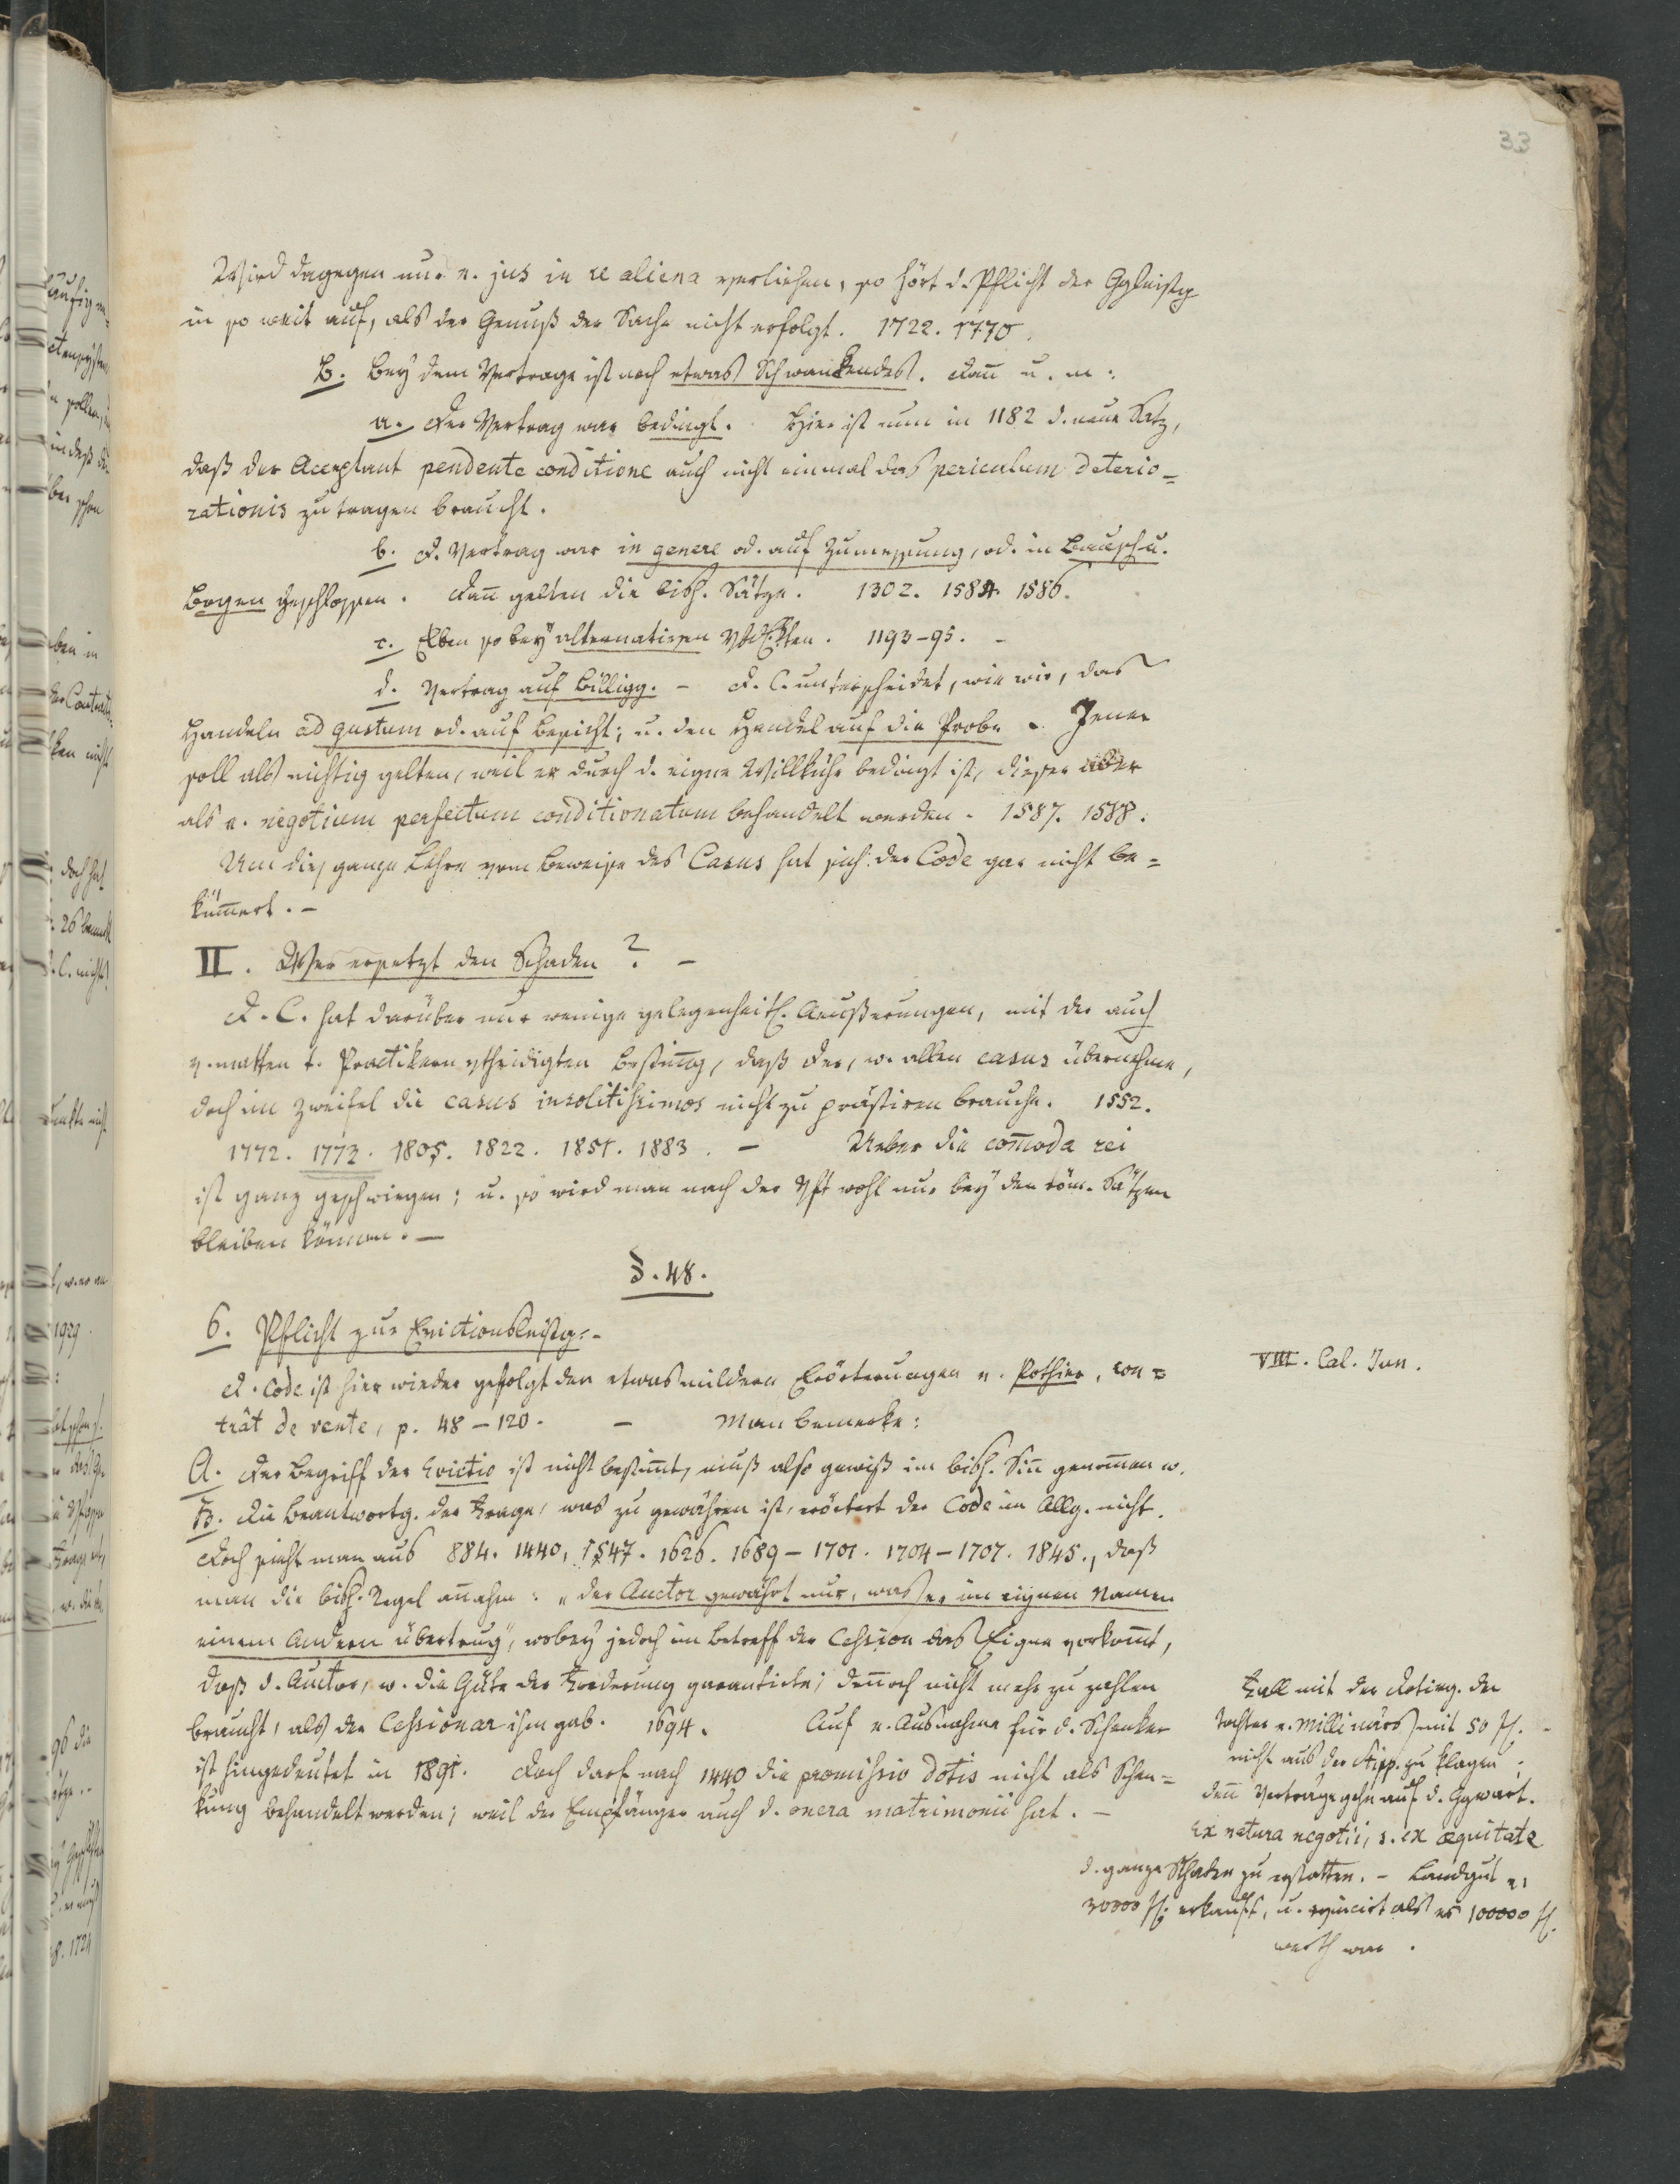 33
Wird dagegen nur e. jus in re aliena verliehen, so hört d. Pflicht der Ggleistg
in so weit auf, als der Genuß der Sache nicht erfolgt. 1722. 1770.
B. Bey dem Vertrage ist noch etwas Schwankendes. Dañ u. m:
a. Der Vertrag war bedingt. Hier ist nun in 1182 d. neue Satz,
daß der Acceptant pendente conditione auch nicht einmal das periculum deterio=
rationis zu tragen braucht.
b. D. Vertrag war in genere od. auf Zumessung, od. in Bausch u.
Bogen geschlossen. Dañ gelten die bish. Sätze. 1302. 1584. 1586.
c. Eben so bey alternativen 1193-95. -
d. Vertrag auf Billigg. - D. C. unterscheidet, wie wir, das
Handeln ad gustum od. auf Besicht; u. den Handel auf die Probe. Jener
soll als nichtig gelten, weil er durch d. eigne Willkühr bedingt ist, dieser aber
als e. negotium perfectum conditionatum behandelt werden. 1587. 1588.
Um dies ganze Lehre vom Beweise des Casus hat sich der Code gar nicht be=
küm̄ert. -
II. Wer ersetzt den Schaden? -
D. C. hat darüber nur wenige gelegenheitl. Aeußerungen, mit der auch
v. Practikern vtheidigten Bestim̄g, daß der, w. allen casus übernehme,
doch im Zweifel die casus insolitissimos nicht zu prästiren brauche. 1552.
1772. 1773. 1805. 1822. 1851. 1883. - Ueber die com̄oda rei
ist ganz geschwiegen; u. so wird man nach der Vft wohl nur bey den röm. Sätzen
bleiben können. -
§. 48.
6. Pflicht zur Evictionsleistg. -
D. Code ist hier wieder gefolgt den etwas mildern Erörterungen v. Pothier, con=
trât de vente, p. 48-120. - Man bemerke:
VIII. Cal. Jun.
A. Der Begriff der Evictio ist nicht bestim̄t, muß also gewiß im bish. Siñ genom̄en w.
B. Die Beantwortg. der Frage, was zu gewähren ist, erörtert der Code im Allg. nicht.
Doch sieht man aus 884. 1440, 1547. 1626. 1689-1701. 1704-1707. 1845., daß
man die bish. Regel añahm: „der Auctor gewährt nur, was er im eignen Namen
einem Andern übertrug", wobey jedoch im Betreff der Cession das Eigne vorkom̄t,
daß d. Auctor, w. die Güte der Forderung garantirte, deñoch nicht mehr zu zahlen
braucht, als der Cessionar ihm gab. 1694. Auf e. Ausnahme für d. Schenker
ist hingedeutet in 1891. Doch darf nach 1440 die promissio dotis nicht als Schen=
kung behandelt werden; weil der Empfänger auch d. onera matrimonii hat. -
Fall mit der Dotirg. der
Tochter e. Millinärs mit 50 fl. -
nicht aus der Stipp. zu klagen;
deñ Verträge gehn auf d. Ggwart.
Ex natura negotii, s. ex æquitate
d. ganze Schaden zu erstatten. - Landgut zu
30000 fl. erkauft, u. evincirt als es 100000 fl.
werth war.